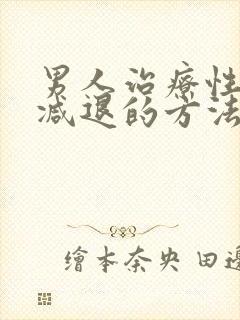 男人治療性
減退的方法
繪本奈央 田邊